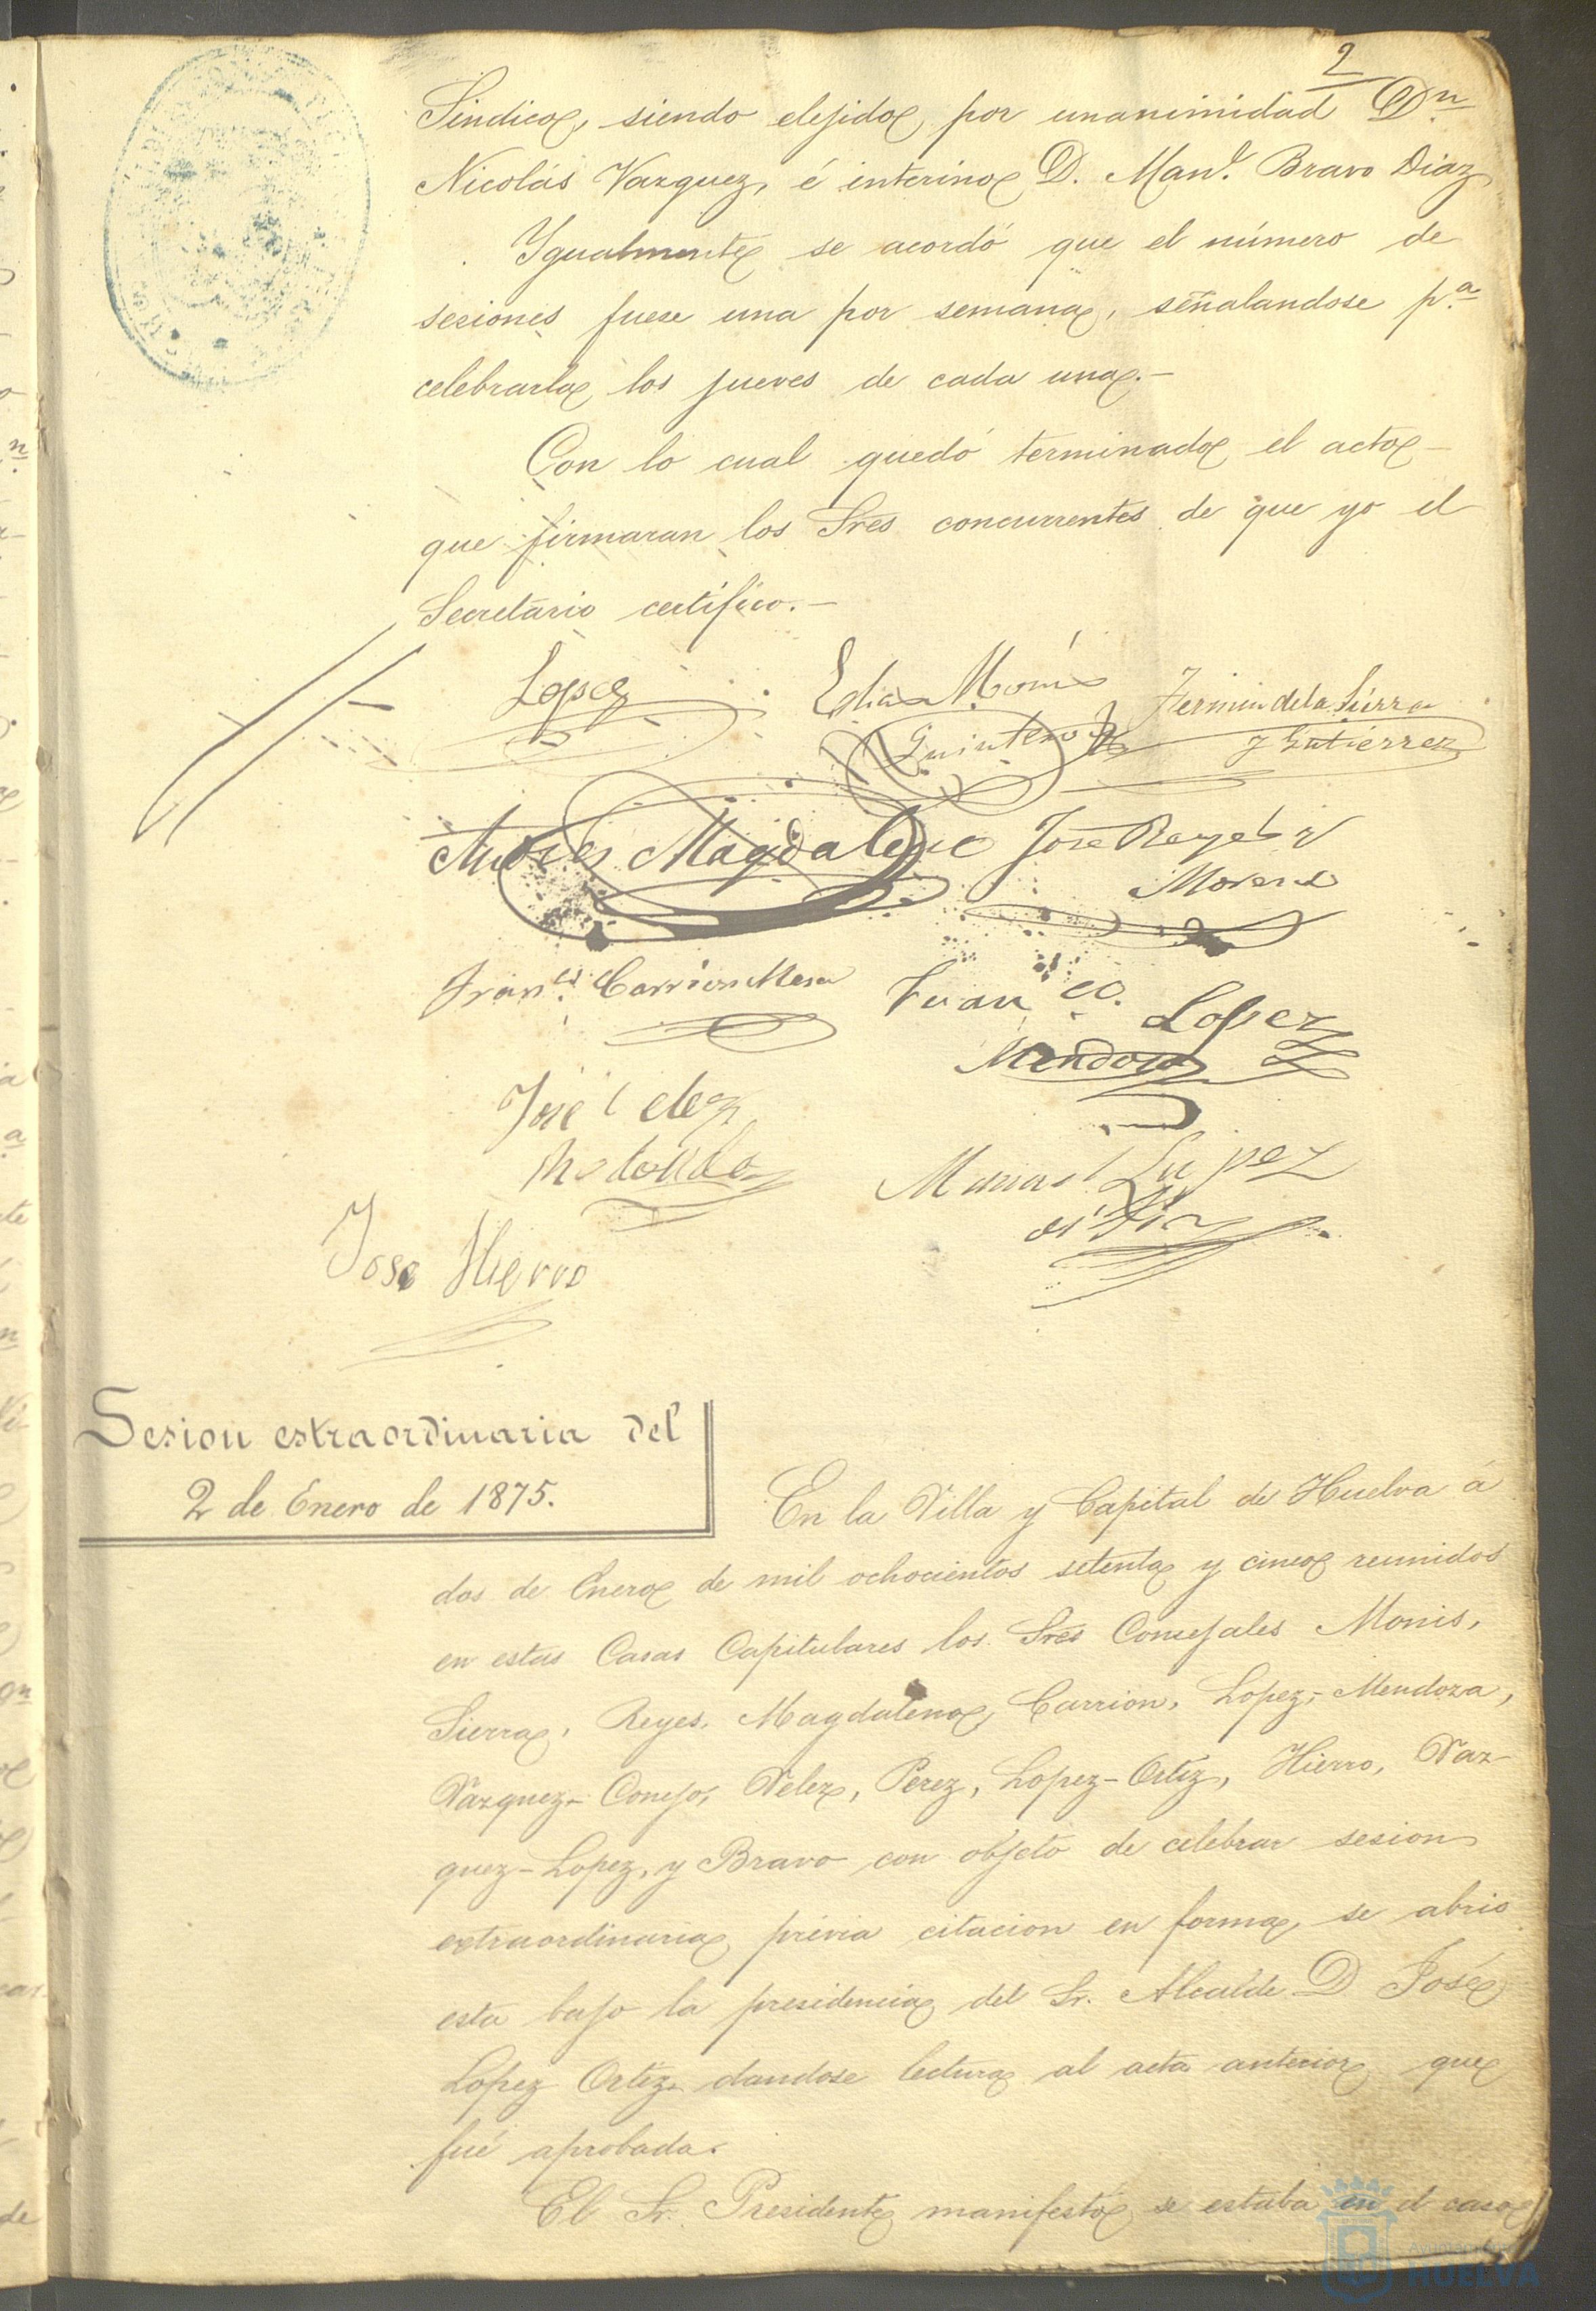 2
Sindico, siendo elejido por unanimidad Dn
Nicolás Vazquez, é interino D. Manl. Bravo Diaz
Igualmente se acordó que el número de
sesiones fuese una por semana, señalandose pa
celebrarla los jueves de cada una.—
Con lo cual quedó terminado el acto—
que firmaran los Sres concurrentes de que yo el
Secretario certifico.—
Lopez
Elias Monis
Quintero
Fermin de la Sierra
y Gutierrez
Andres Magdalena
Jose Reyes y
Moreno
Franco. Carrion Mesa
Juan
Lopez
Mendoza
José Velez
Jose Hierro
Manuel Lopez
Sesion estraordinaria del
2 de Enero de 1875.
En la Villa y Capital de Huelva á
dos de Enero de mil ochocientos setenta y cinco reunidos
en estas Casas Capitulares los Sres Consejales Monis,
Sierra, Reyes, Magdalena, Carrion, Lopez-Mendoza,
Vazquez-Conejo, Velez, Perez, Lopez-Ortiz, Hierro, Vaz-
quez-Lopez, y Bravo con objeto de celebrar sesion
extraordinaria, previa citacion en forma, se abrio
esta bajo la presidencia del Sr. Alcalde D José
Lopez Ortiz dandose lectura al acta anterior que
fué aprobada.
El Sr. Presidente manifestó se estaba en el caso
Ayuntamiento
HUELVA